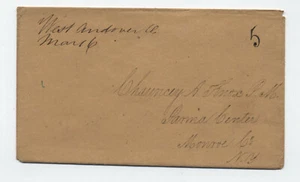 West Andover, O.
Mar 6
5
Chauncey A. Knox P.M.
Parma Center
Monroe Co
N.Y.